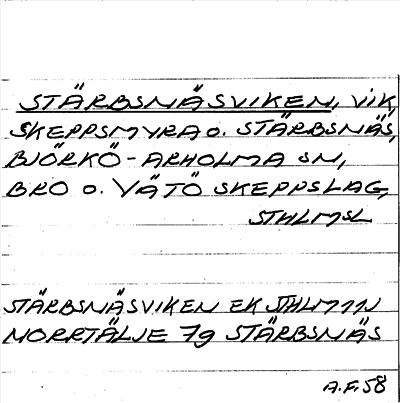 STÄRBSNÄSVIKEN, VIK,
SKEPPSMYRA O. STÄRBSNÄS,
BJÖRKÖ-ARHOLMA SN,
BRO O. VÄTÖ SKEPPSLAG,
STHLMSL
STÄRBSNÄSVIKEN EK STHLM 11J
NORRTÄLJE 7g STÄRBSNÄS
A.F.58